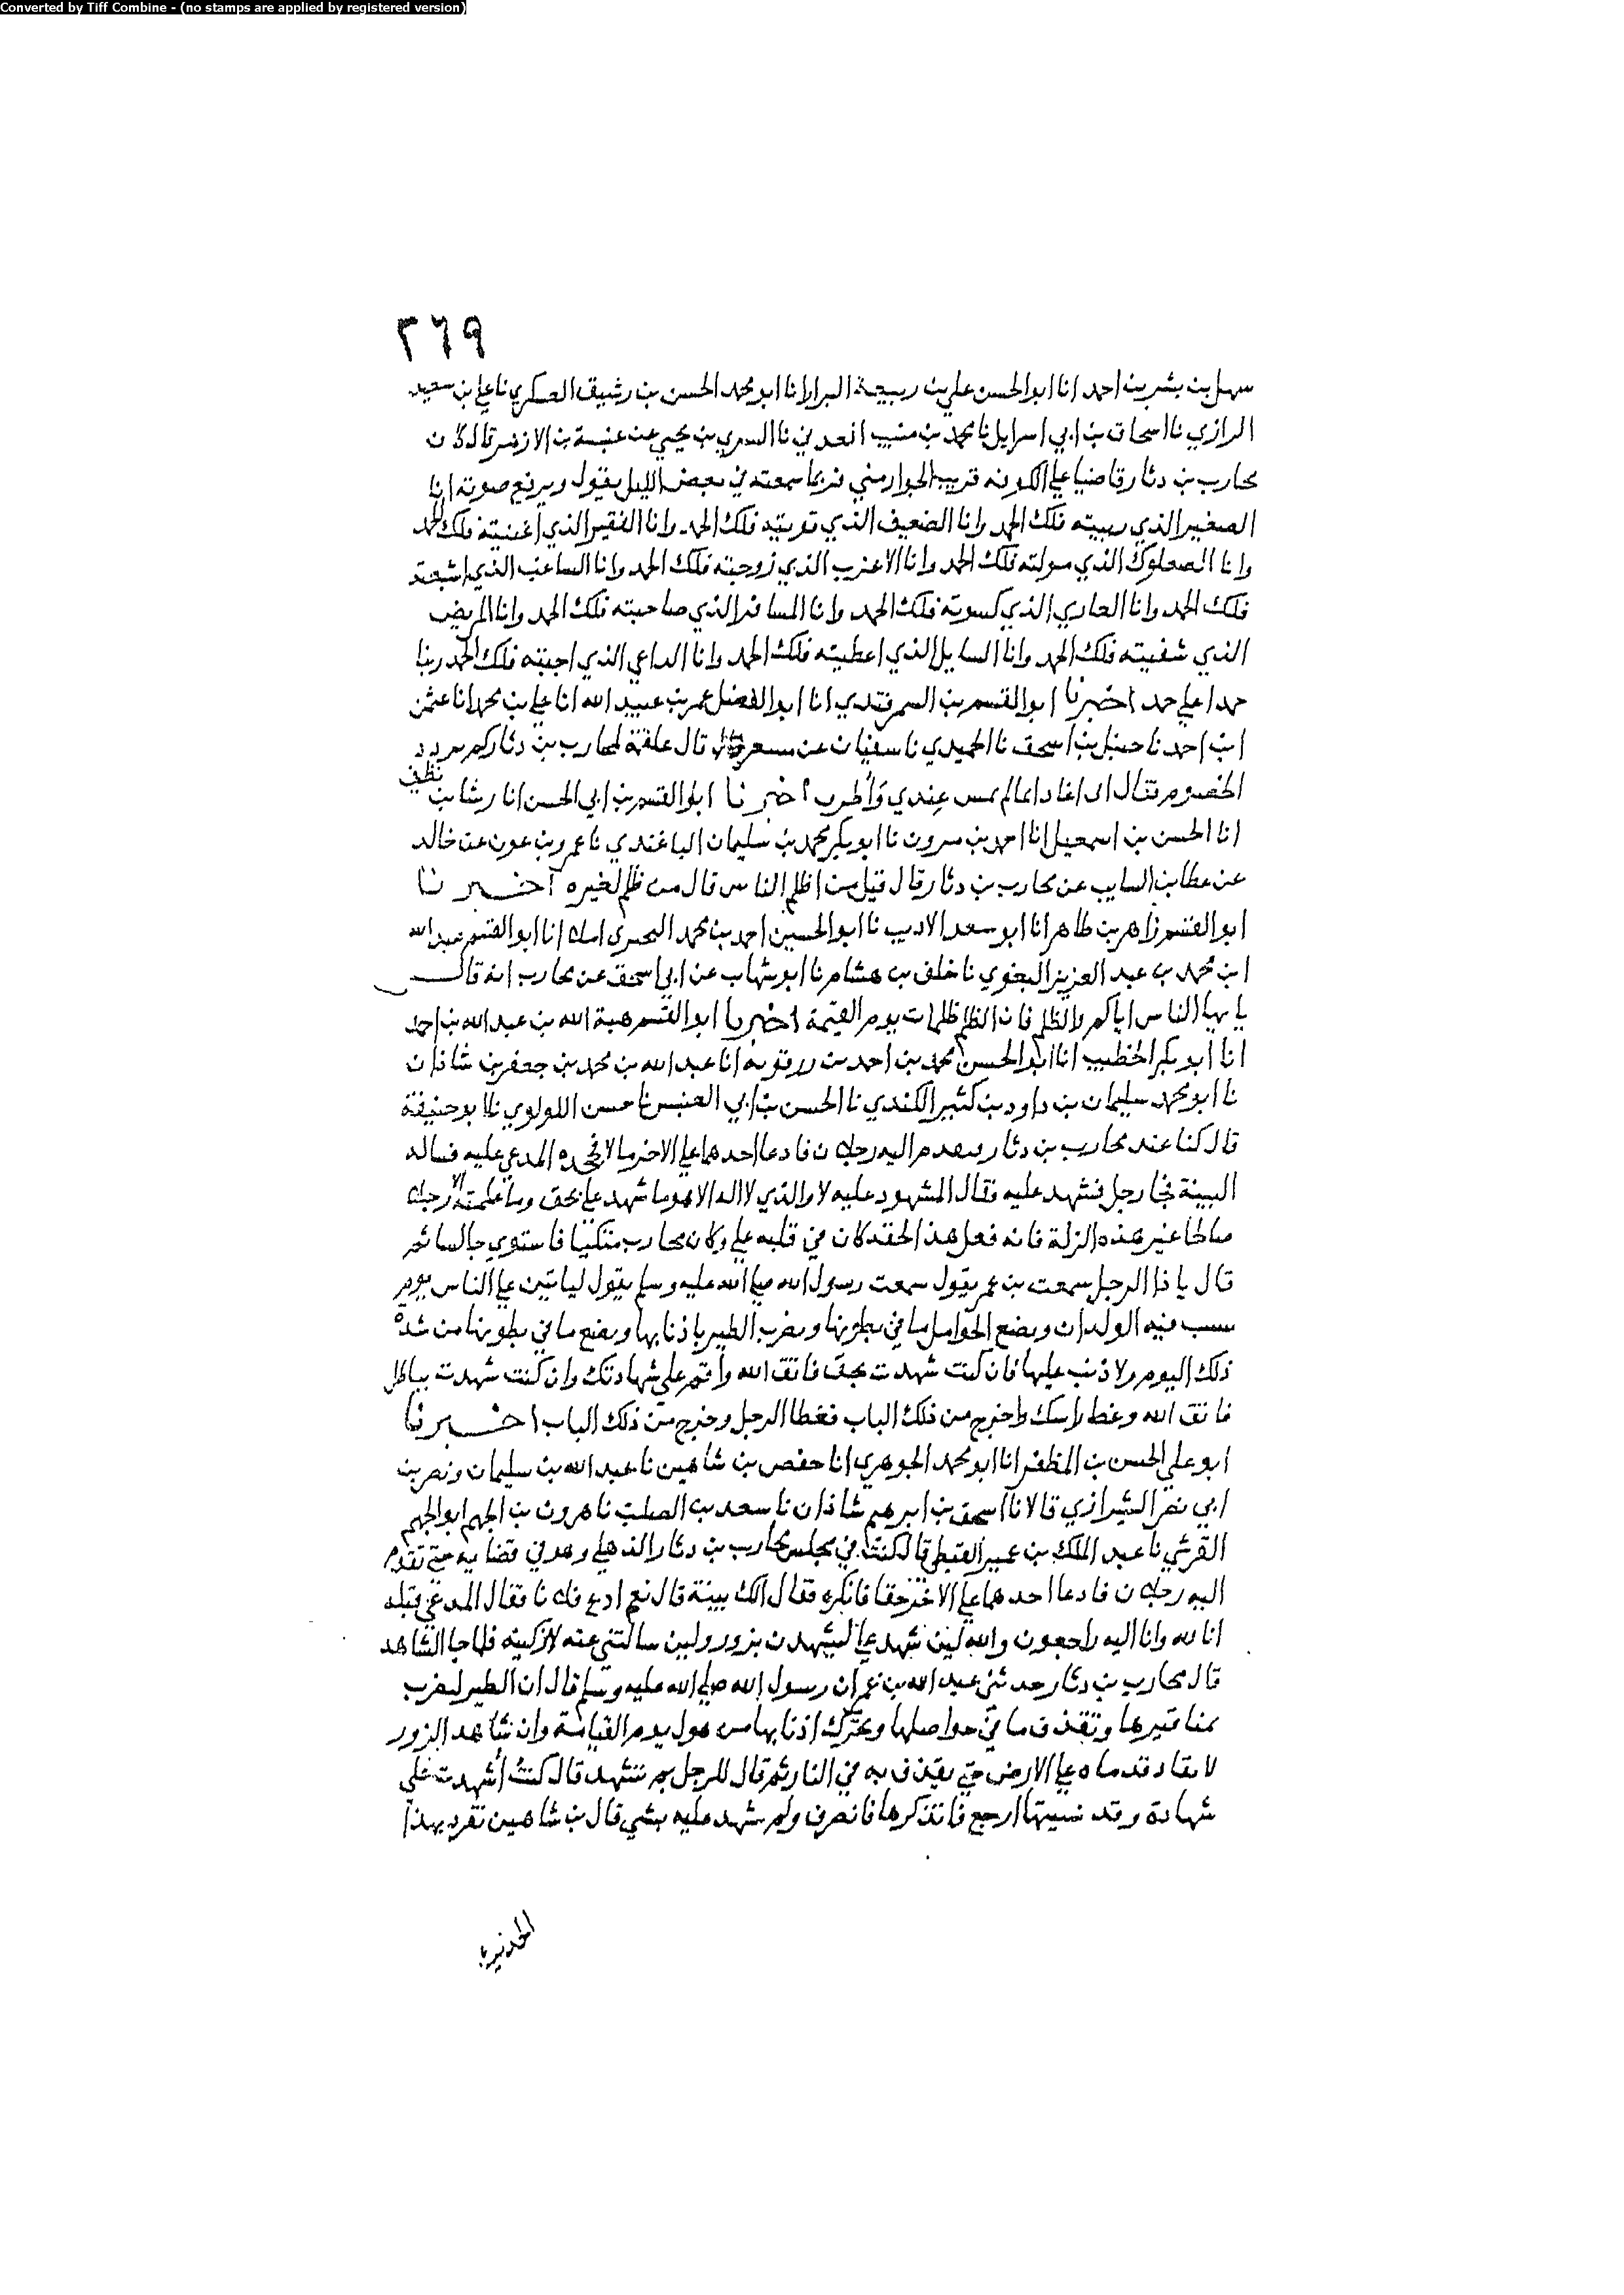 Converted by Tiff Combine - (no stamps are applied by registered version)
٢٦٩
سهل بن بشر بن احمد انا ابو الحسن علي بن ربيعة البزار انا ابو محمد الحسن بن رشيق العسكري نا علي بن سعيد
الرازي نا اسحاق بن ابي اسرايل نا محمد بن منيب العدني نا السري بن يحيي عن عنبسة بن الازهر قال كان
محارب بن دثار قاضيا علي الكوفه قريب الجوار مني فربما سمعته في بعض الليل يقول ويرفع صوته انا
الصغير الذي ربيته فلك الحمد وانا الضعيف الذي قويته فلك الحمد وانا الفقير الذي اغنيته فلك الحمد
وانا الصعلوك الذي مولته فلك الحمد وانا الاعزب الذي زوجته فلك الحمد وانا الساغب الذي اشبعته
فلك الحمد وانا العاري الذي كسوته فلك الحمد وانا المسافر الذي صاحبته فلك الحمد وانا المريض
الذي شفيته فلك الحمد وانا السايل الذي اعطيته فلك الحمد وانا الداعي الذي اجبته فلك الحمد ربنا
حمدا علي حمد اخبرنا ابو القسم بن السمرقندي انا ابو الفضل عمر بن عبيد الله انا علي بن محمد انا عثمن
ابن احمد نا حنبل بن اسحق نا الحميدي نا سفيان عن مسعر قال قال علقمة لمحارب بن دثار كم تردد
الخصوم فقال اخبرنا ابو القسم بن ابي الحسن انا رشا بن نظيف
انا الحسن بن اسمعيل انا احمد بن مروان نا ابو بكر محمد بن سليمان الباغندي نا عمرو بن عون عن خالد
عن عطا بن السايب عن محارب بن دثار قال قيل من اظلم الناس قال من ظلم لغيره اخبرنا
ابو القسم زاهر بن طاهر انا ابو سعد الاديب نا ابو الحسين احمد بن محمد البحيري املا انا ابو القسم عبد الله
ابن محمد بن عبد العزيز البغوي نا خلف بن هشام نا ابو شهاب عن ابي اسحق عن محارب انه قال
يا ايها الناس اياكم والظلم فان الظلم ظلمات يوم القيمة اخبرنا ابو القسم هبة الله بن عبد الله بن احمد
انا ابو بكر الخطيب انا ابو الحسن محمد بن احمد بن رزقويه انا عبد الله بن محمد بن جعفر بن شاذان
نا ابو محمد سليمان بن داود بن كثير الكندي نا الحسن بن ابي العنبس نا حسن اللولوي نا ابو حنيفة
قال كنا عند محارب بن دثار فتقدم اليه رجلان فادعا احدهما علي الاخر مالا فجحده المدعي عليه فساله
البينة فجا رجل فشهد عليه فقال المشهود عليه لا والذي لا اله الا هو ما شهد علي بحق وما علمته الا رجلا
صالحا غير هذه الزلة فانه فعل هذا لحقد كان في قلبه علي وكان محارب متكيا فاستوي جالسا ثم
قال يا ذا الرجل سمعت بن عمر يقول سمعت رسول الله صلي الله عليه وسلم يقول لياتين علي الناس يوم
يشيب فيه الولدان وتضع الحوامل ما في بطونها وتضرب الطير باذنابها وتضع ما في بطونها من شدة
ذلك اليوم ولا ذنب عليها فان كنت شهدت بحق فاتق الله واقم علي شهادتك وان كنت شهدت بباطل
فاتق الله وغط راسك واخرج من ذلك الباب فغطا الرجل وخرج من ذلك الباب اخبرنا
ابو علي الحسن بن المظفر انا ابو محمد الجوهري انا حفص بن شاهين نا عبد الله بن سليمان ونصر بن
ابي نصر الشيرازي قالا نا اسحق بن ابرهيم شاذان نا سعد بن الصلت نا هرون بن الجهم ابو الجهم
القرشي نا عبد الملك بن عمير القبطي قال كنت في مجلس محارب بن دثار الذهلي وهو في قضايه حتي تقدم
اليه رجلان فادعا احدهما علي الاخر حقا فانكره فقال الك بينة قال نعم ادع فلانا فقال المدعي قبله
انا لله وانا اليه راجعون والله لين شهد علي ليشهدن بزور ولين سالتني عنه لازكينه فلما جا الشاهد
قال محارب بن دثار حدثني عبد الله بن عمر ان رسول الله صلي الله عليه وسلم قال ان الطير لتضرب
بمناقيرها وتقذف ما في حواصلها وتحرك اذنابها من هول يوم القيامة وان شاهد الزور
لا تقار قدماه علي الارض حتي يقذف به في النار ثم قال للرجل بم تشهد قال كنت اشهدت علي
شهادة وقد نسيتها ارجع فاتذكرها فانصرف ولم يشهد عليه بشي قال بن شاهين تفرد بهذا